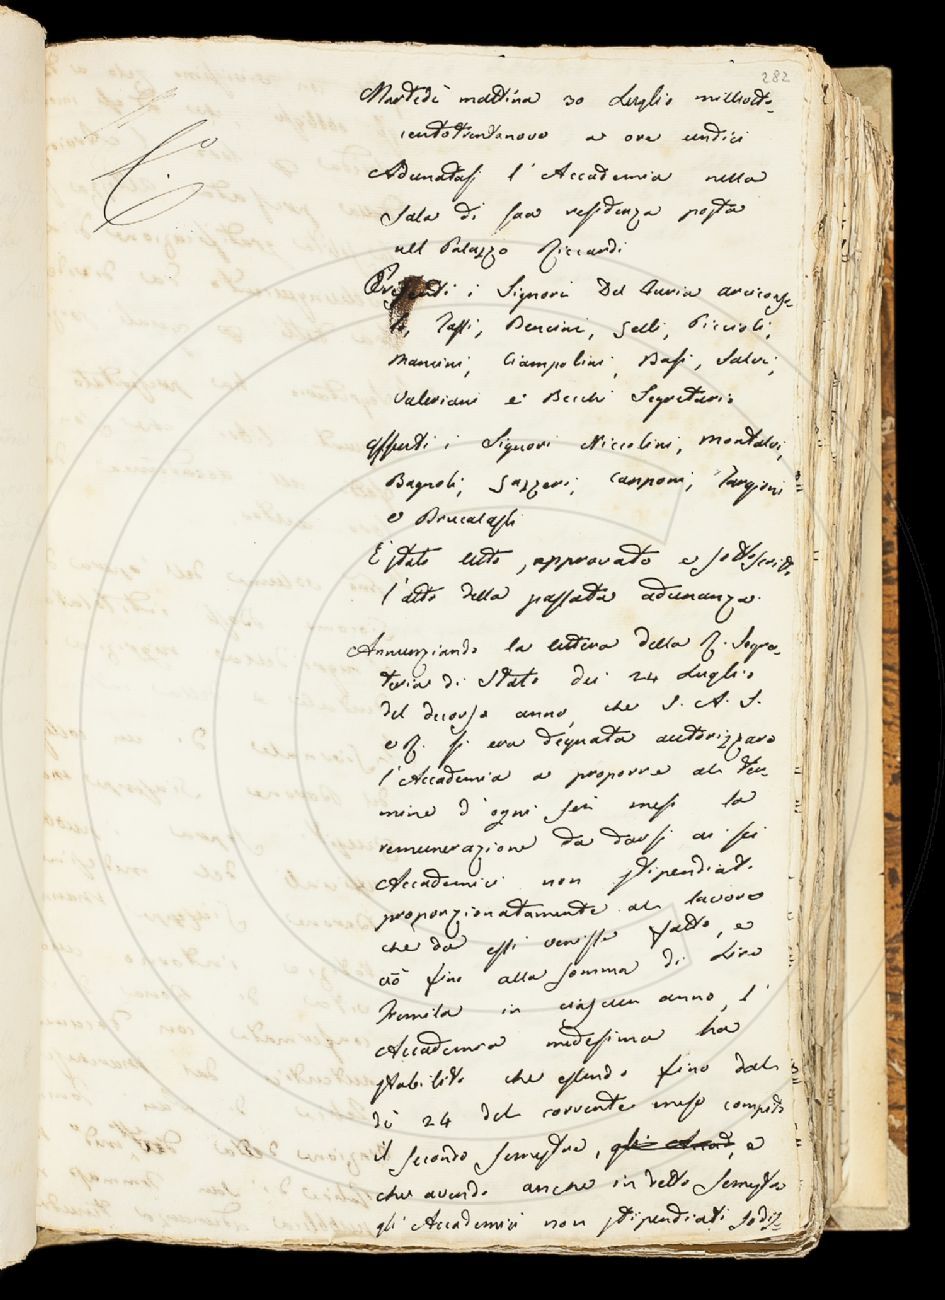 282
Martedì mattina 30 Luglio milleotto-
centotrentanove a ore undici
Adunatasi l'Accademia nella
Sala di sua residenza posta
nel Palazzo Riccardi
Presenti i Signori Del Furia arciconso-
lo, Tassi, Bencini, Gelli, Piccioli,
Mancini, Ciampolini, Basi, Salvi,
Valeriani e Becchi Segretario
Assenti i Signori Niccolini, Montalvi,
Bagnoli, Gazzeri, Capponi, Targioni
e Brucalassi
È stato letto, approvato e sottoscritto
l'atto della passata adunanza.
Annunziando la lettera della R. Segre-
teria di Stato dei 24 Luglio
del decorso anno, che S. A. I.
e R. si era degnata autorizzare
l'Accademia a proporre al ter-
mine d'ogni sei mesi la
remunerazione da darsi ai sei
Accademici non stipendiati
proporzionatamente al lavoro
che da essi venisse fatto, e
ciò fino alla somma di Lire
tremila in ciascun anno, l'
Accademia medesima ha
stabilito che essendo fino dal
dì 24 del corrente mese compito
il secondo semestre, gli Accad, e
che avendo anche in detto semestre
gli Accademici non stipendiati sodis-